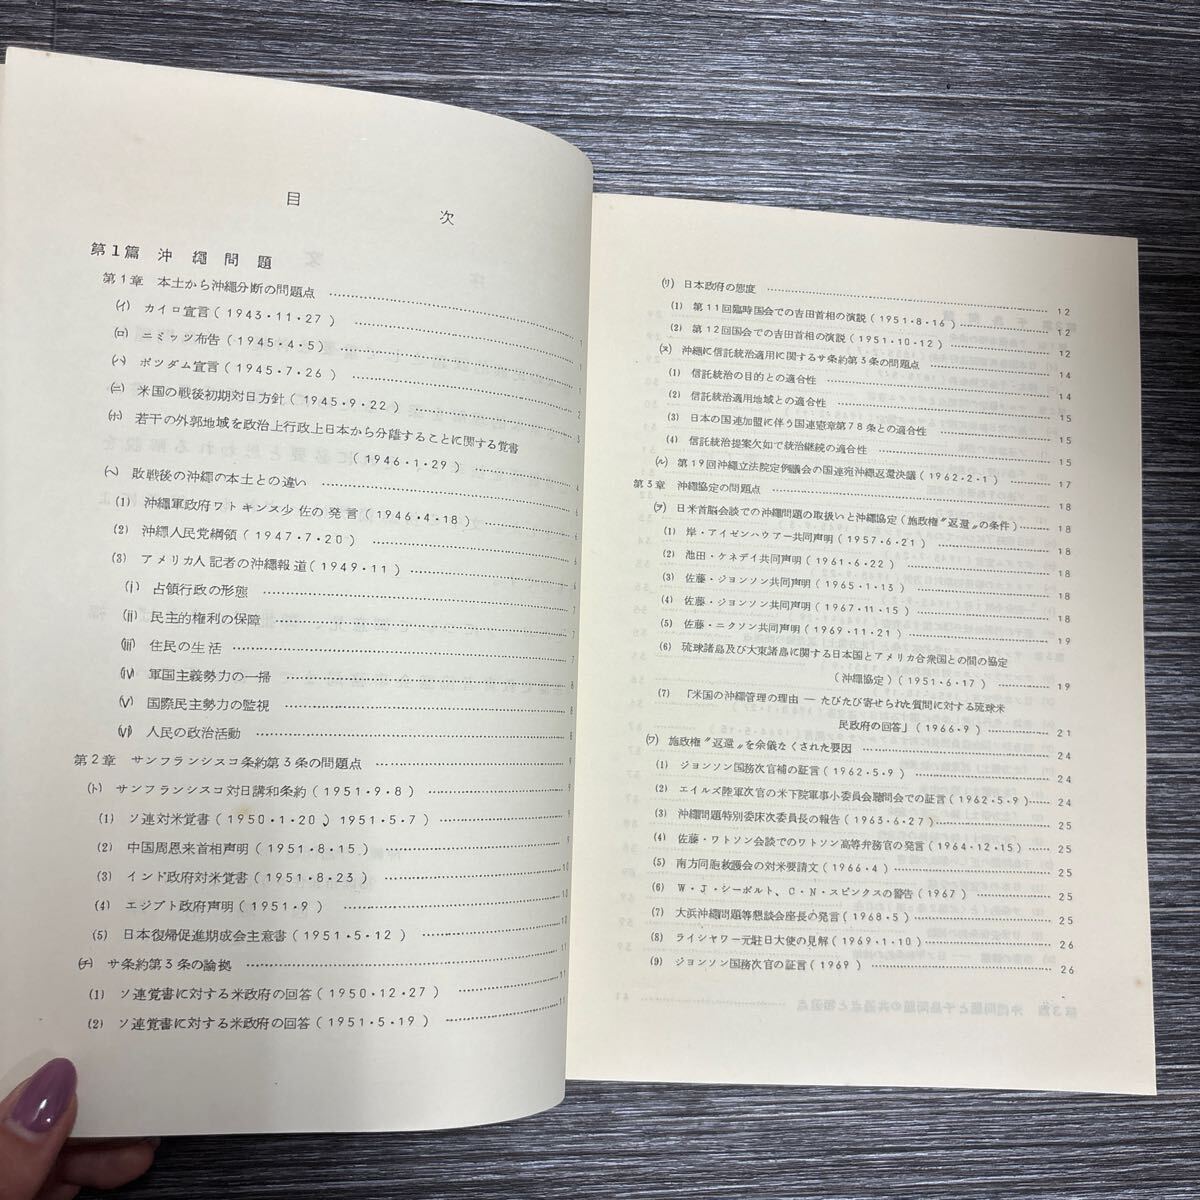 目 次
第1篇 沖縄問題
第1章 本土から沖縄分断の問題点 …… 1
(イ) カイロ宣言(1943・11・27) …… 1
(ロ) ニミッツ布告(1945・4・5) …… 1
(ハ) ポツダム宣言(1945・7・26) …… 2
(ニ) 米国の戦後初期対日方針(1945・9・22) …… 3
(ホ) 若干の外郭地域を政治上行政上日本から分離することに関する覚書
(1946・1・29) …… 4
(ヘ) 敗戦後の沖縄の本土との違い …… 6
(1) 沖縄軍政府ワトキンス少佐の発言(1946・4・18) …… 6
(2) 沖縄人民党綱領(1947・7・20) …… 6
(3) アメリカ人記者の沖縄報道(1949・11) …… 7
(i) 占領行政の形態 …… 7
(ii) 民主的権利の保障 …… 7
(iii) 住民の生活 …… 7
(iv) 軍国主義勢力の一掃 …… 8
(v) 国際民主勢力の監視 …… 8
(vi) 人民の政治活動 …… 8
第2章 サンフランシスコ条約第3条の問題点 …… 9
(ト) サンフランシスコ対日講和条約(1951・9・8) …… 9
(1) ソ連対米覚書(1950・1・20、1951・5・7) …… 9
(2) 中国周恩来首相声明(1951・8・15) …… 9
(3) インド政府対米覚書(1951・8・23) …… 10
(4) エジプト政府声明(1951・9) …… 10
(5) 日本復帰促進期成会主意書(1951・5・12) …… 11
(チ) サ条約第3条の論拠 …… 11
(1) ソ連覚書に対する米政府の回答(1950・12・27) …… 11
(2) ソ連覚書に対する米政府の回答(1951・5・19) ……
(リ) 日本政府の態度 …… 12
(1) 第11回臨時国会での吉田首相の演説(1951・8・16) …… 12
(2) 第12回国会での吉田首相の演説(1951・10・12) …… 12
(ヌ) 沖縄に信託統治適用に関するサ条約第3条の問題点 …… 14
(1) 信託統治の目的との適合性 …… 14
(2) 信託統治適用地域との適合性 …… 15
(3) 日本の国連加盟に伴う国連憲章第78条との適合性 …… 15
(4) 信託統治提案欠如で統治継続の適合性 …… 15
(ル) 第19回沖縄立法院定例議会の国連宛沖縄返還決議(1962・2・1) …… 18
第3章 沖縄協定の問題点 …… 18
(ヲ) 日米首脳会談での沖縄問題の取扱いと沖縄協定(施政権〝返還〟の条件) …… 18
(1) 岸・アイゼンハウアー共同声明(1957・6・21) …… 18
(2) 池田・ケネデイ共同声明(1961・6・22) …… 18
(3) 佐藤・ジョンソン共同声明(1965・1・13) …… 18
(4) 佐藤・ジョンソン共同声明(1967・11・15) …… 18
(5) 佐藤・ニクソン共同声明(1969・11・21) …… 19
(6) 琉球諸島及び大東諸島に関する日本国とアメリカ合衆国との間の協定
(沖縄協定)(1951・6・17) …… 19
(7) 「米国の沖縄管理の理由 ― たびたび寄せられた質問に対する琉球米
民政府の回答」(1966・9) …… 21
(ワ) 施政権〝返還〟を余儀なくされた要因 …… 24
(1) ジョンソン国務次官補の証言(1962・5・9) …… 24
(2) エイルズ陸軍次官の米下院軍事小委員会聴問会での証言(1962・5・9) …… 24
(3) 沖縄問題特別委床次委員長の報告(1963・6・27) …… 25
(4) 佐藤・ワトソン会談でのワトソン高等弁務官の発言(1964・12・15) …… 25
(5) 南方同胞救護会の対米要請文(1966・4) …… 25
(6) W・J・シーボルト、C・N・スピンクスの警告(1967) …… 25
(7) 大浜沖縄問題等懇談会座長の発言(1968・5) …… 25
(8) ライシャワー元駐日大使の見解(1969・1・10) …… 26
(9) ジョンソン国務次官の証言(1969) …… 26